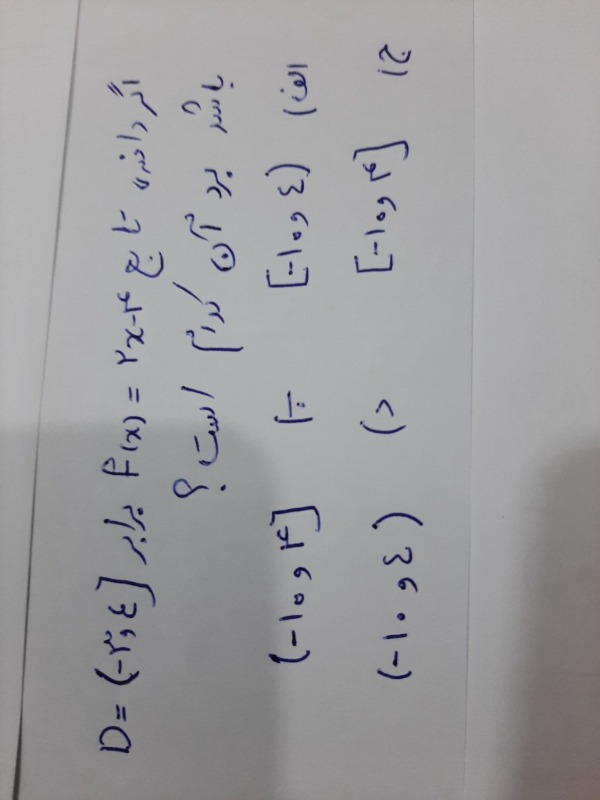 اگر دامنه‌ی تابع f(x) = ۲x-۴ برابر D = (-۳ و ٤]
باشد برد آن کدام است؟
الف) [-۱۰ و ٤) ب) (-۱۰ و ۴]
ج) [-۱۰ و ۴] د) (-۱۰ و ٤)